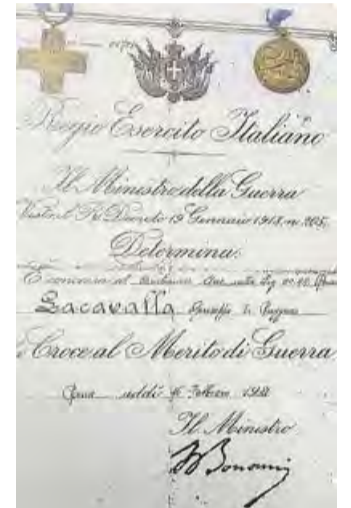 Regio Esercito Italiano
Il Ministro della Guerra
Visto il R. Decreto 19 Gennaio 1918, n. 205,
Determina:
È concessa al
Lacavalla Giuseppe di
Croce al Merito di Guerra
addì Febbraio
Il Ministro
Bonomi